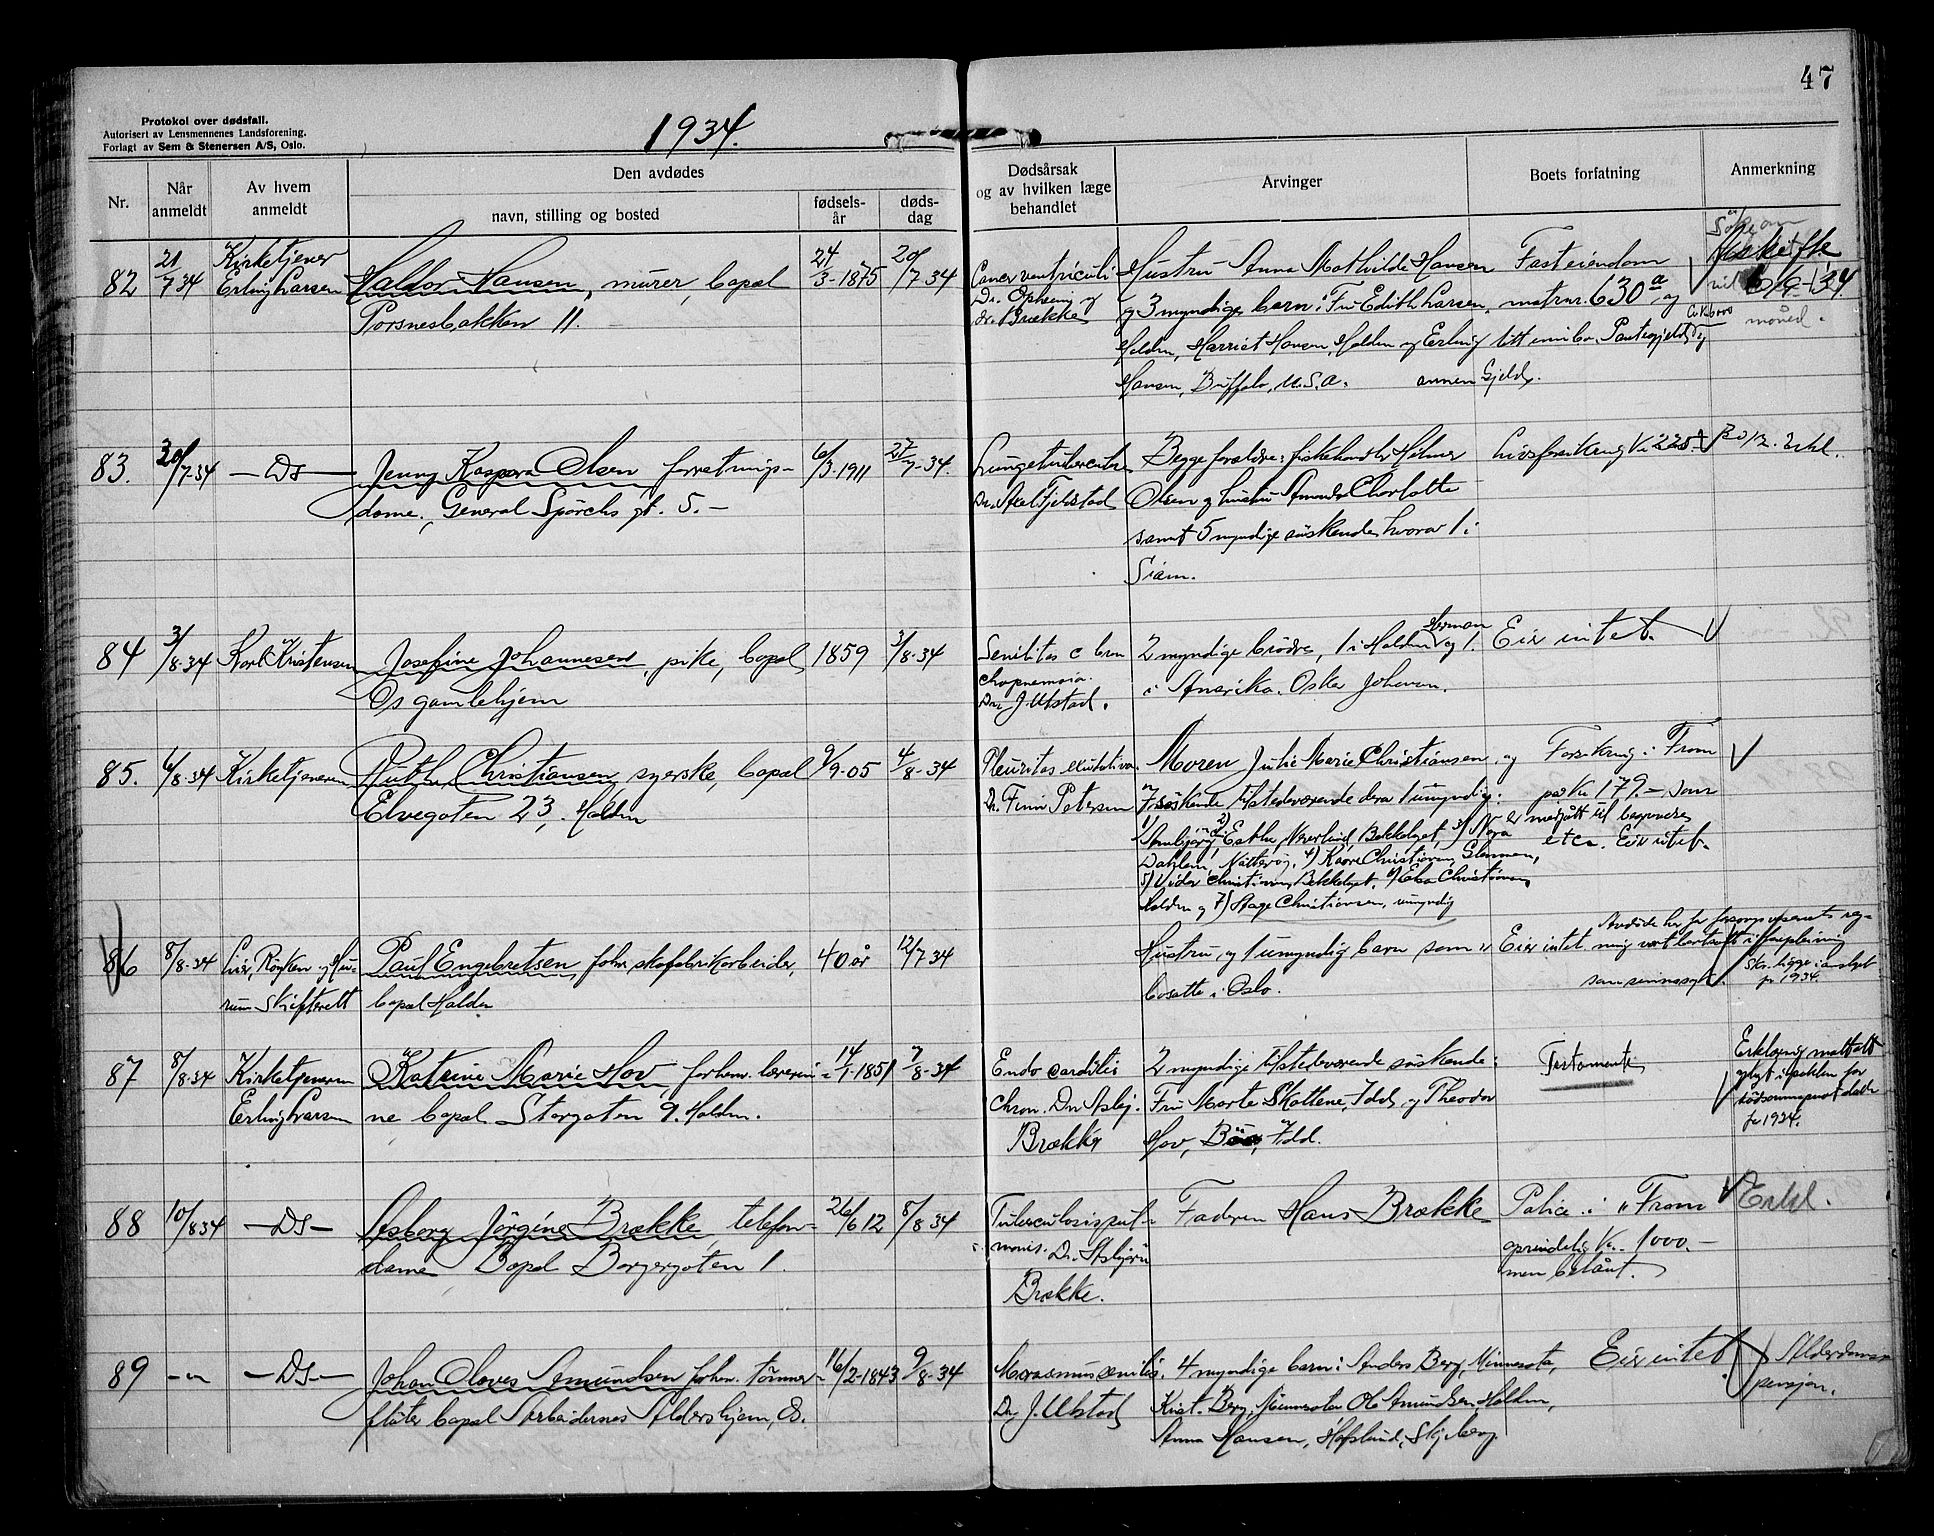 47
Protokol over dødsfall.
Autorisert av Lensmennenes Landsforening.
Forlagt av Sem & Stenersen A/S, Oslo.
1934.
Nr.
Når anmeldt
Av hvem anmeldt
Den avdødes
navn, stilling og bosted
fødsels-år
døds-dag
Dødsårsak og av hvilken læge behandlet
Arvinger
Boets forfatning
Anmerkning
82 21/7 34 Kirketjener Erling Larsen
Haldor Hansen, murer, bopal
Porsnesbakken 11.
24/3-1875 20/7-34
Cancer ventriculi
Dr. Opheim og
dr. Brække
Hustru Anna Mathilde Hansen
og 3 myndige barn: Fru Edith Larsen,
Halden, Harriet Hansen, Halden og Erling
Hansen, Buffalo, U.S.A.
Fast eiendom
matrnr. 630a og
litt innbo. Pantegjeld og
annen Gjeld.
Skifte
/9-34
måned.
83. 30/7-34 -Ds-
Jenny Kaspara Olsen, forretnings-
dame, General Spörcks gt. 5.-
6/3-1911 27/7-34.
Lungetuberculose
Dr. Axel Fjelstad
Begge foreldre: fiskehandler Hilmer
Olsen og hustru Amanda Charlotte
samt 5 myndige søskende, hvorav 1 i
Siam.
Livsforsikring Kr. 225.-
Erkl.
84 3/8-34 Karl Kristensen
Josefine Johannesen, pike, bopal
Os gamlehjem
1859 3/8-34
Senilitas c bron
chopnemoia.
Dr. J. Ulstad.
2 myndige brödre, 1 i Halden Herman og 1
i Amerika. Oskar Johansen.
Eier intet.
85. 6/8-34 Kirketjeneren
Ruth Christiansen, syerske, bopal
Elvegaten 23, Halden
9/9-05 4/8-34
Pleuritas exudativa
Dr. Finn Petersen
Moren Julie Marie Christiansen, og
7 søskende tilstedeværende derav 1 umyndig:
1) 2) Esther Bekkelaget, 3) Nora
Dahlen, Nötteröy, 4) Kaare Christiansen, Glemmen,
5) Vidar Christiansen, Bekkelaget, 6) Christiansen,
Halden og 7) Aage Christiansen, umyndig
Forsikring i Fram
på Kr. 179.- som
er medgått til begravelse
etc. Eier intet.
86 8/8-34 Lier, Röyken og Hu-
rum Skifterett
Paul Engebretsen, forhv. skofabrikarbeider,
bopal Halden
40 år 12/7 34
Hustru og 1 umyndig barn som er
bosatte i Oslo.
Eier intet.
Avdøde har for forsorgsvesenets reg-
ning vært bortsatt i forpleining
som sinnssyk.
Skr. ligger i anlegget
for 1934.
87 8/8-34 Kirketjeneren
Erling Larsen
Katrine Marie Hov, forhenv. lærerin-
ne bopal Storgaten 9. Halden.
14/1-1851 7/8-34
Endocarditis
chron. Dr. Asbj.
Brække
2 myndige tilstedeværende søskende:
Fru Marte Skottene, Idd, og Theodor
Hov, Idd.
Testamente
Erklæring mottatt
og lagt i pakken for
for 1934.
88 10/8 34 -Ds-
Asborg Jörgine Brække, telefon-
dame Bopal Borgergaten 1.
26/6 12 8/8 34
Tuberculosis pul-
monis. Dr. Asbjørn
Brække.
Faderen Hans Brække
Police i "Fram
oprindelig Kr. 1000.-
men belånt.
Erkl.
89 -"- -Ds-
Johan Olaves Amundsen, forhenv. tömmer-
fløter bopal Arbeidernes Aldershjem, Os.
16/2-1843 9/8-34
Marasmus senilis.
Dr. J. Ulstad
4 myndige barn: Anders Berg, Minnesota,
Krist. Berg, Minnesota, Ole Amundsen, Halden,
Anna Hansen, Hafslund, Skjeberg.
Eier intet
Alderdoms-
pensjon.